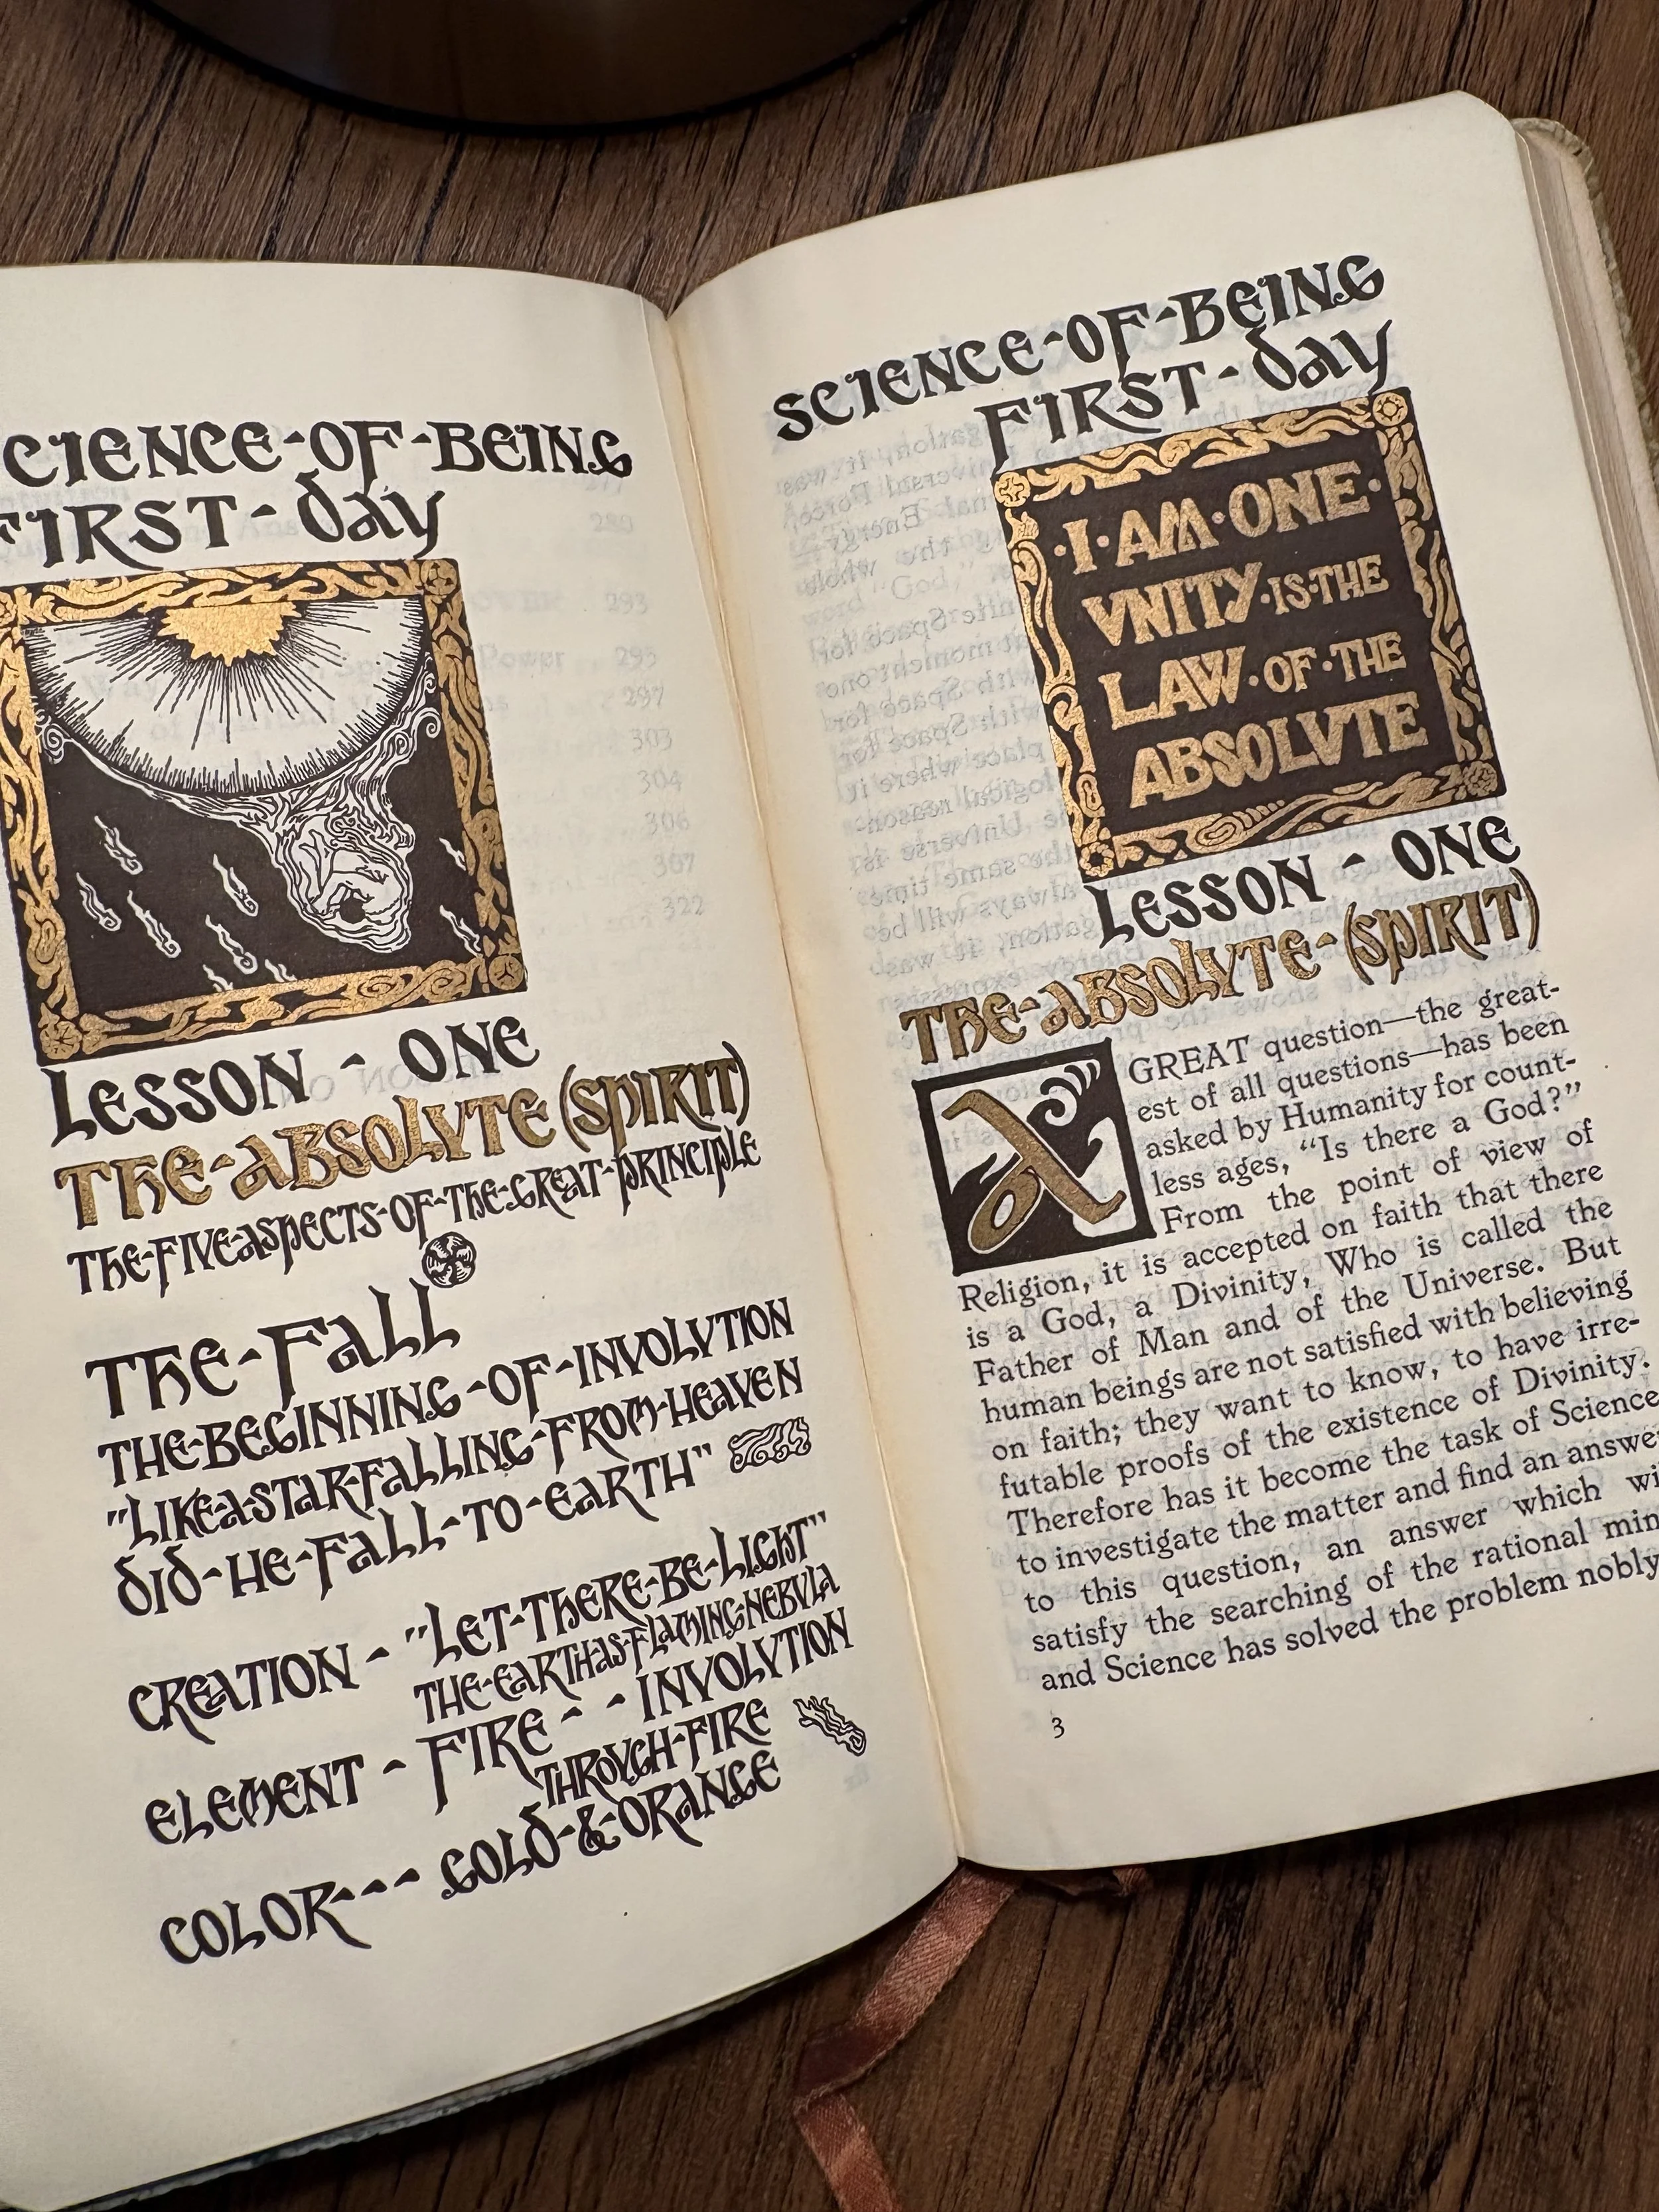 SCIENCE-OF-BEING
FIRST-DAY
LESSON - ONE
THE-ABSOLVTE (SPIRIT)
THE-FIVE-ASPECTS-OF-THE-GREAT-PRINCIPLE
THE-FALL
THE-BEGINNING-OF-INVOLVTION
"LIKE-A-STAR-FALLING-FROM-HEAVEN
DID-HE-FALL-TO-EARTH"
CREATION - "LET-THERE-BE-LIGHT"
THE-EARTH-AS-FLAMING-NEBVLA
ELEMENT - FIRE - - INVOLVTION
THROVGH-FIRE
COLOR--- GOLD-&-ORANGE
SCIENCE-OF-BEING
FIRST-DAY
·I·AM·ONE·
VNITY·IS·THE
LAW·OF·THE
ABSOLVTE
LESSON - ONE
THE-ABSOLVTE-(SPIRIT)
A GREAT question—the great-
est of all questions—has been
asked by Humanity for count-
less ages, “Is there a God?”
From the point of view of
Religion, it is accepted on faith that there
is a God, a Divinity, Who is called the
Father of Man and of the Universe. But
human beings are not satisfied with believing
on faith; they want to know, to have irre-
futable proofs of the existence of Divinity.
Therefore has it become the task of Science
to investigate the matter and find an answer
to this question, an answer which wi
satisfy the searching of the rational min
and Science has solved the problem nobly
3
293
295
297
303
304
306
307
322
Power